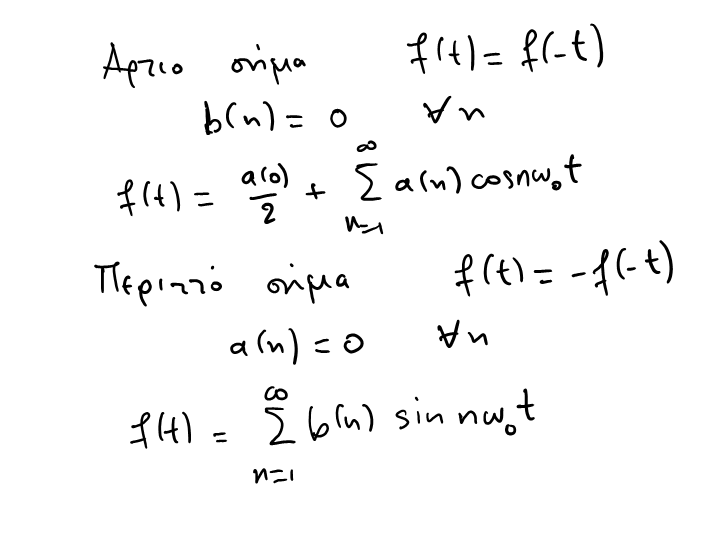 Αρτιο σήμα f(t) = f(-t)
b(n) = 0 ∀n
f(t) = a(0)/2 + ∑_{n=1}^{∞} a(n) cosnω₀t
Περιττό σήμα f(t) = -f(-t)
a(n) = 0 ∀n
f(t) = ∑_{n=1}^{∞} b(n) sin nω₀t